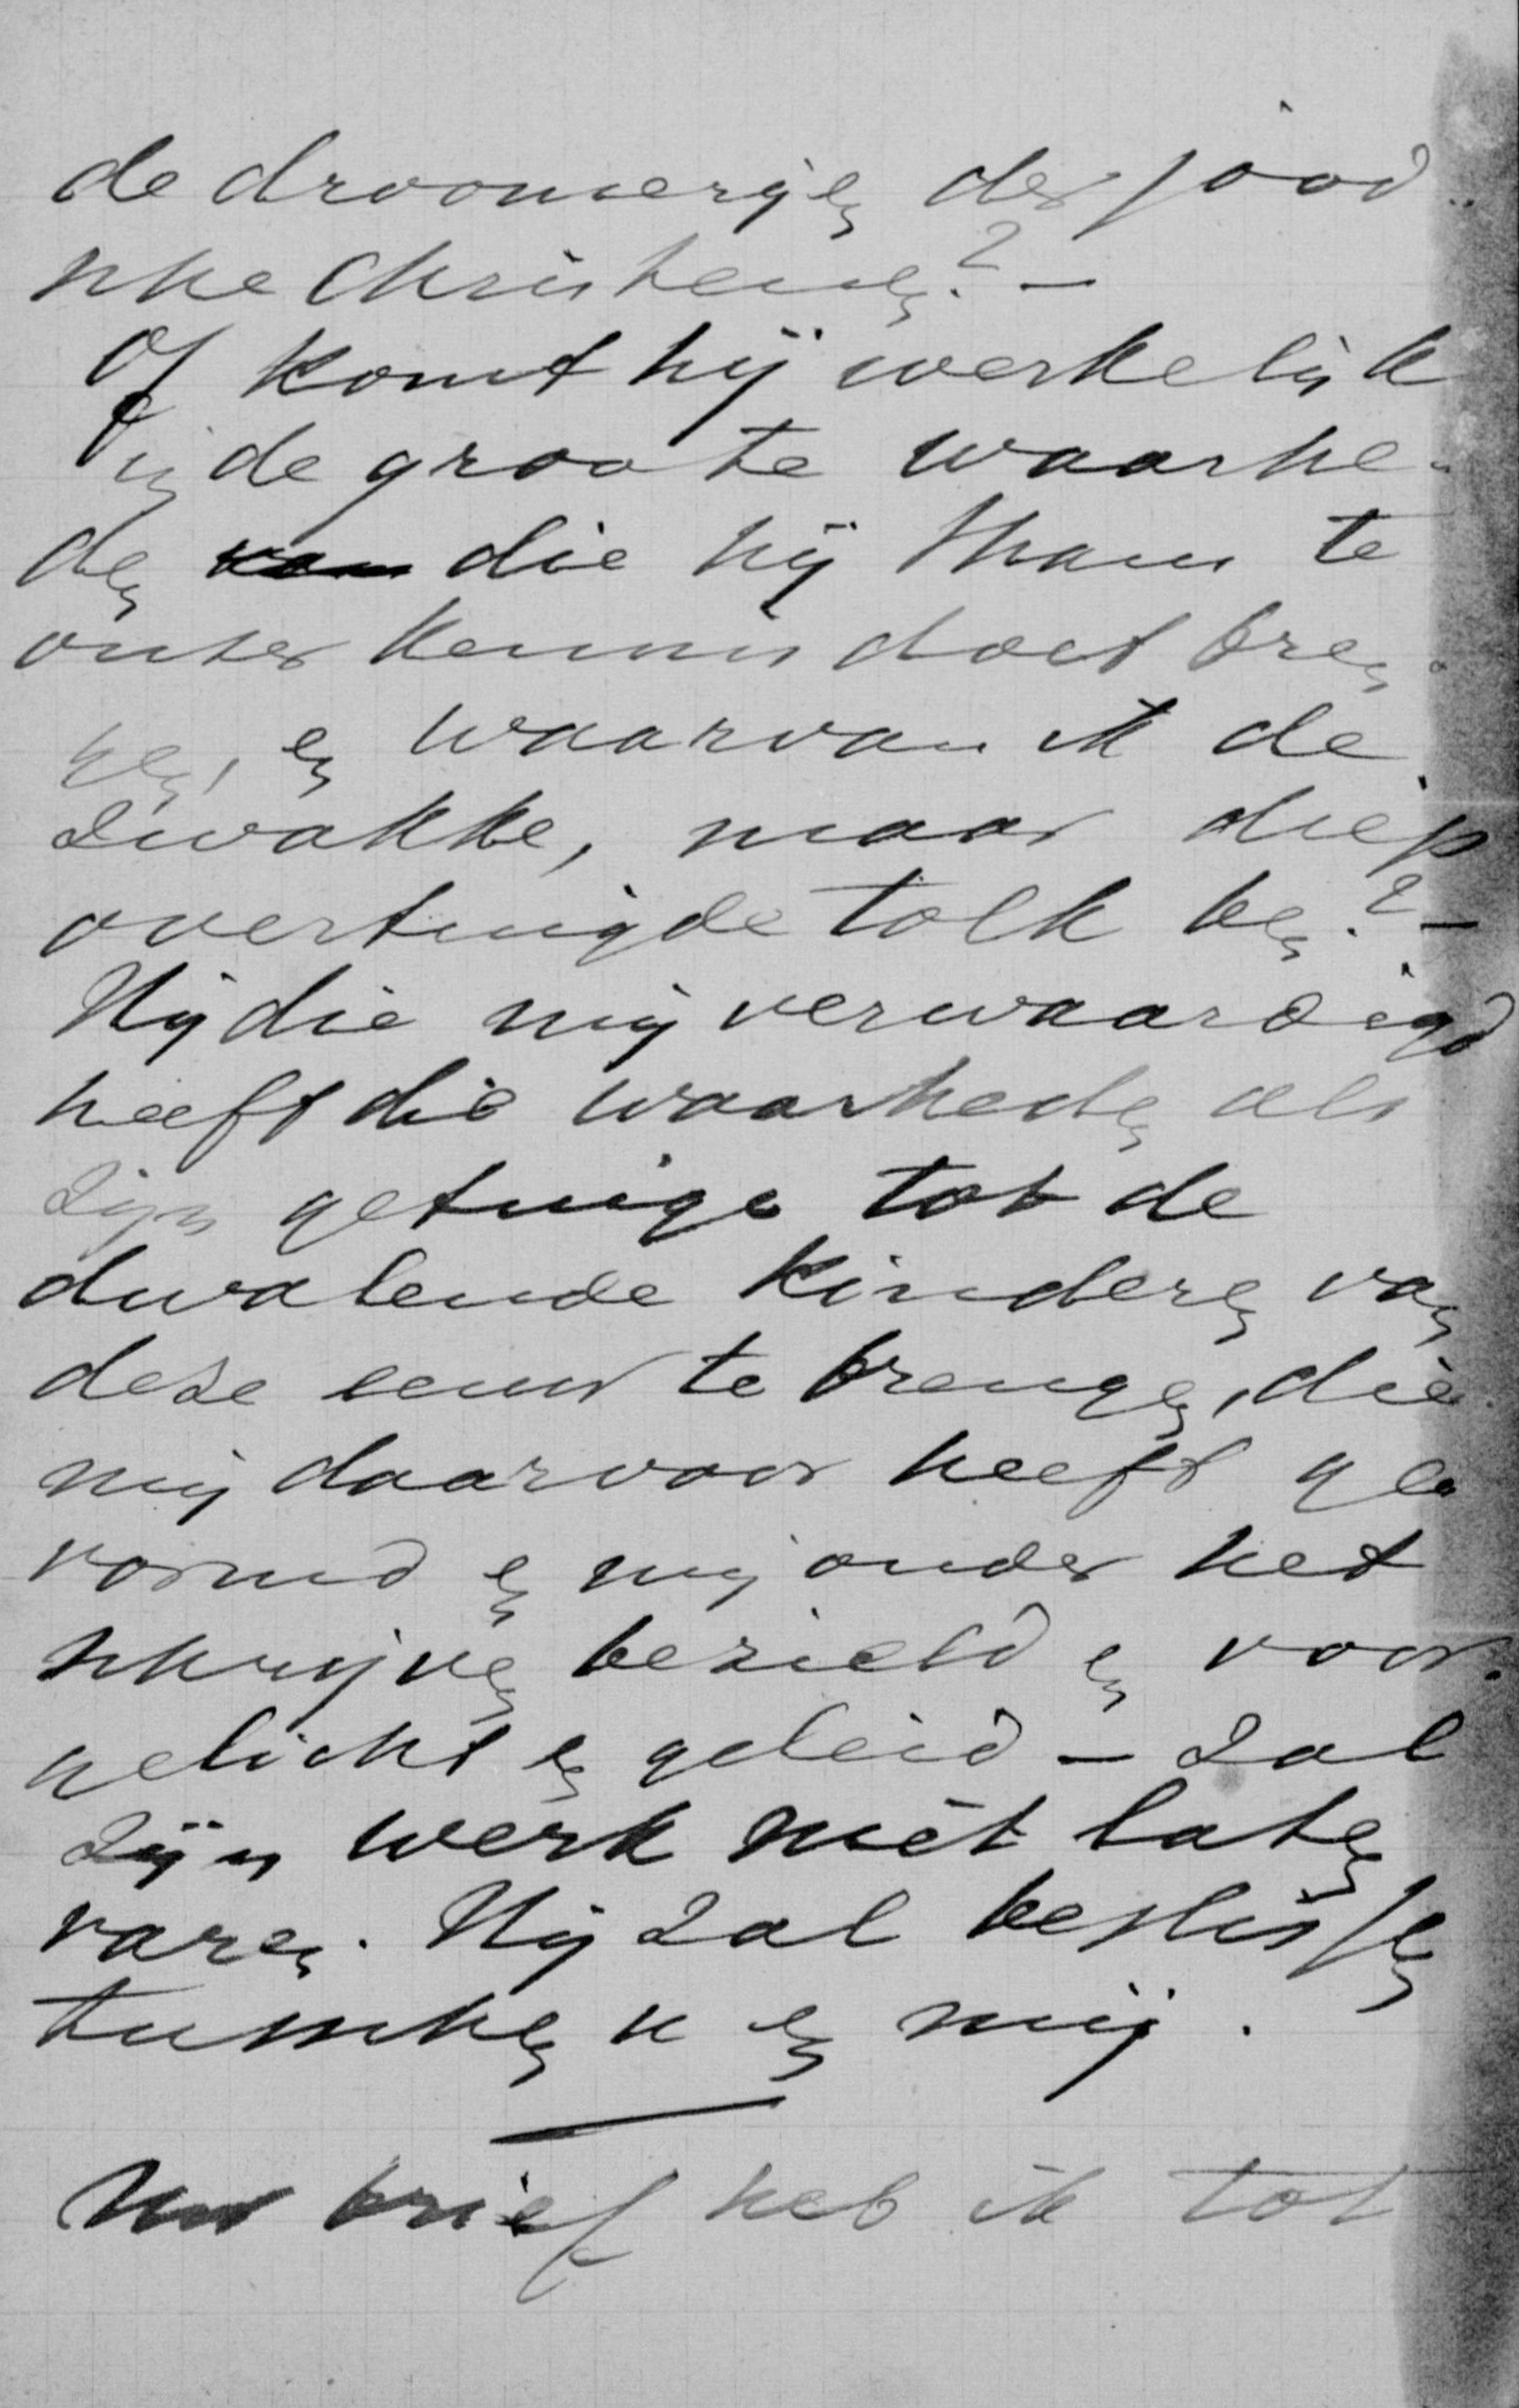 de droomerijen der jood-
sche Christenen? –
Of komt hij werkelijk
in de groote waarhe-
den van die hij thans te
onzer kennis doet bren-
gen, en waarvan ik de
zwakke, maar diep
overtuigde tolk ben? –
Hij die mij verwaardigd
heeft die waarheden als
zijn getuige tot de
dwalende kinderen van
deze eeuw te brengen, die
mij daarvoor heeft ge
vormd en mij onder het
schrijven bezield en voor-
gelicht en geleid – zal
zijn werk niet laten
varen. Hij zal beslissen
tusschen u en mij.
Uw brief heb ik tot